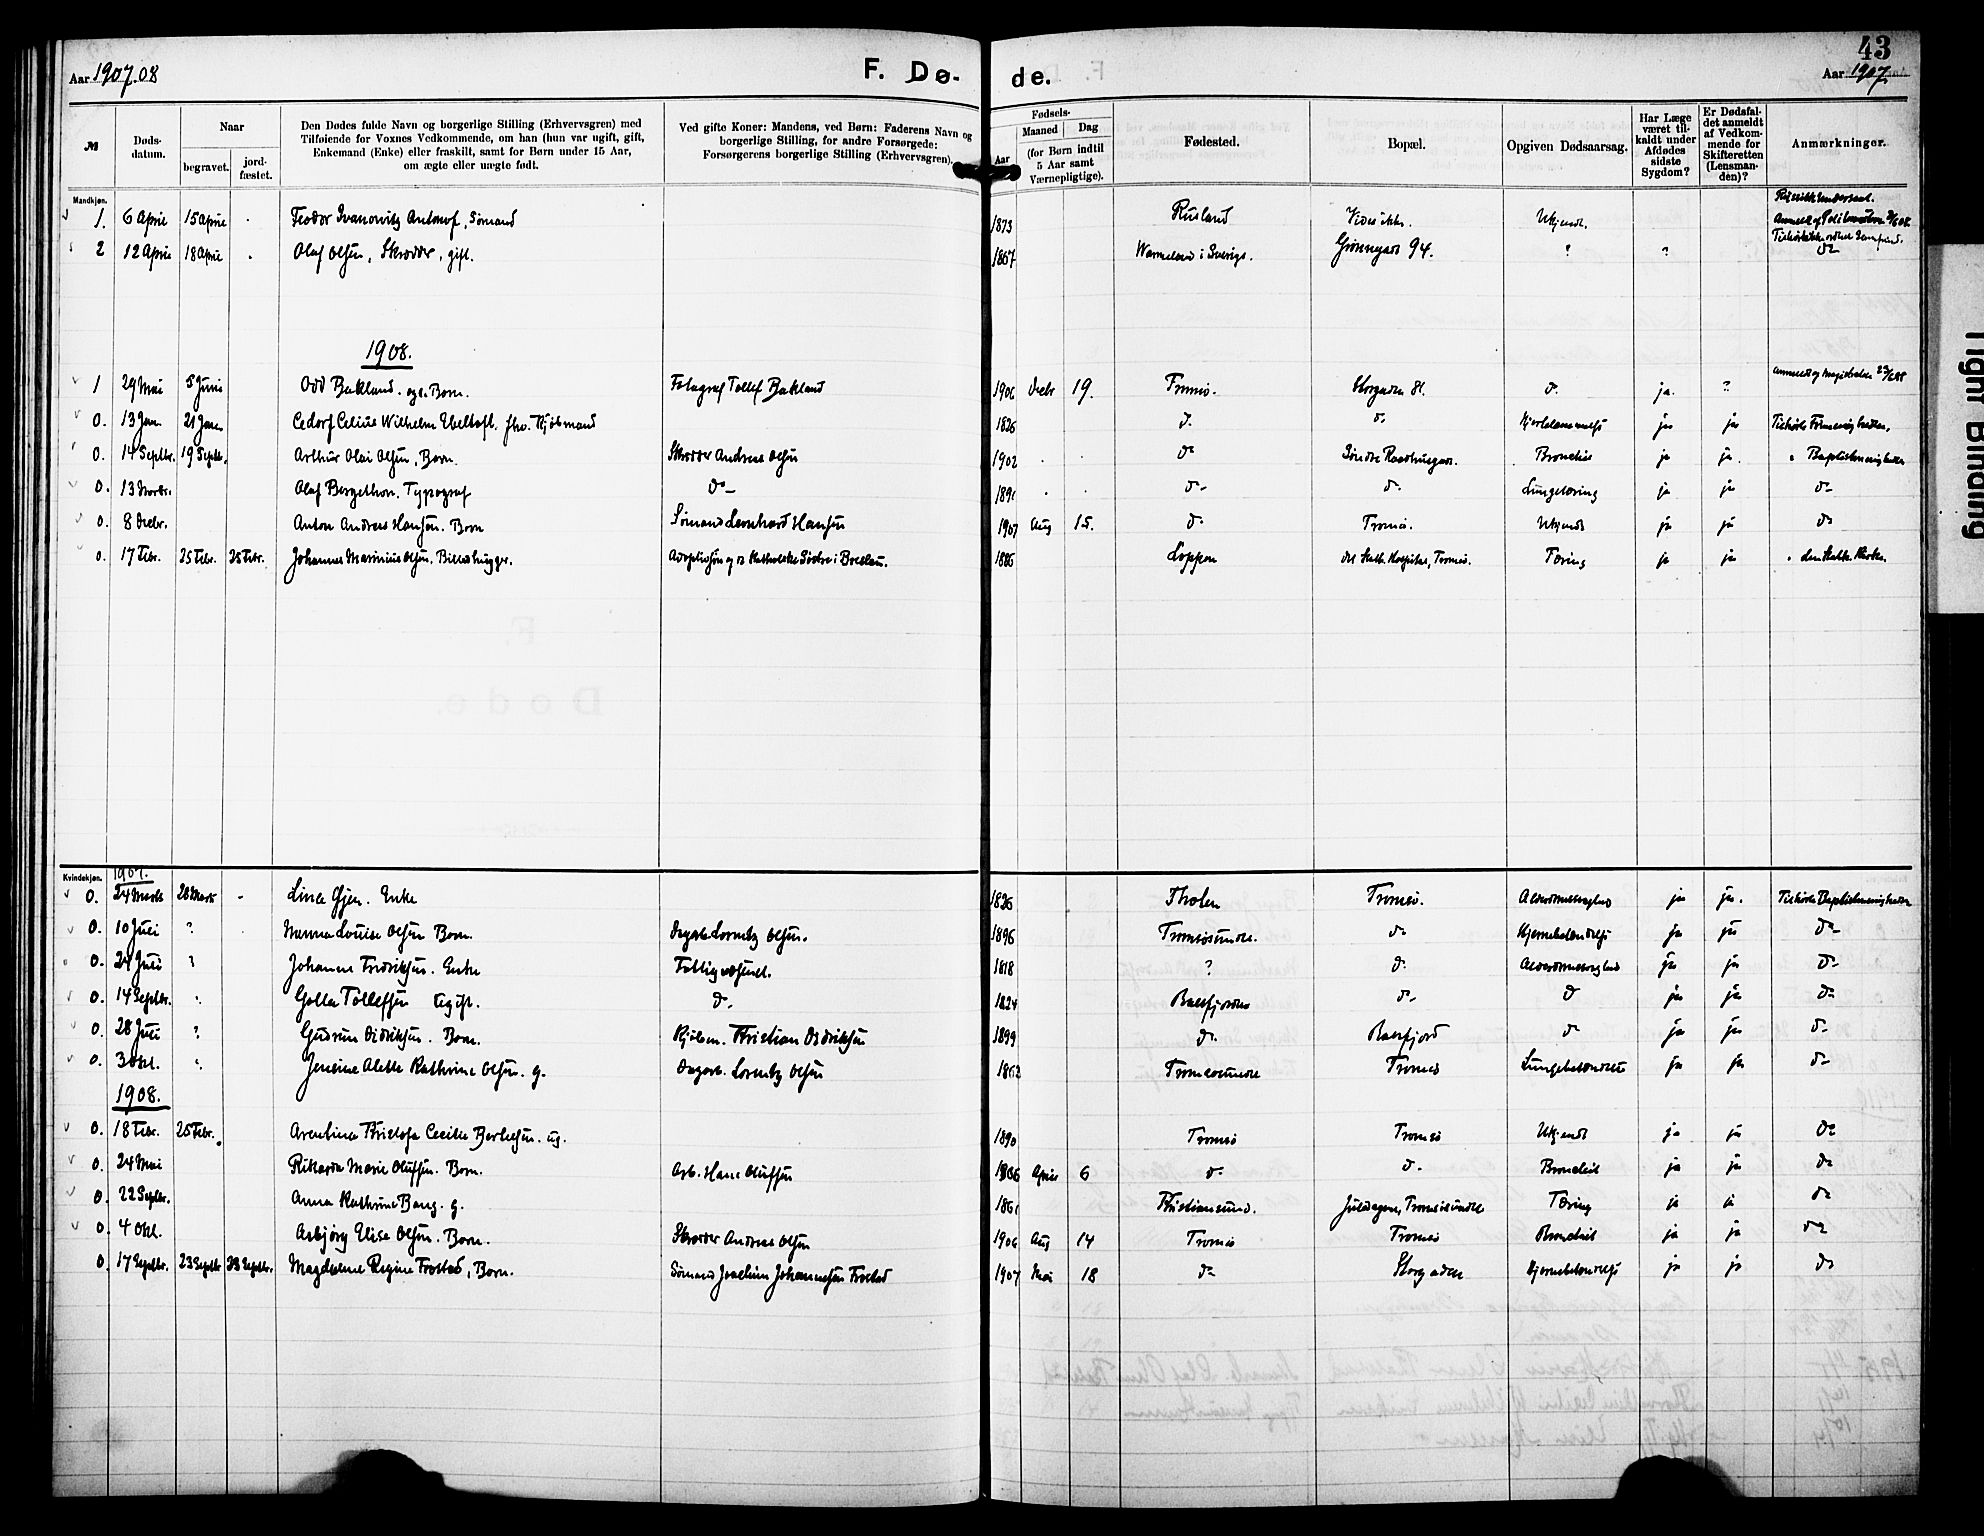 43
Aar 1907.08 F. Dø- de. Aar 1907
№ Døds-datum. Naar begravet. jord-fæstet. Den Dødes fulde Navn og borgerlige Stilling (Erhvervsgren) med Tilføiende for Voxnes Vedkommende, om han (hun var ugift, gift, Enkemand (Enke) eller fraskilt, samt for Børn under 15 Aar, om ægte eller uægte født. Ved gifte Koner: Mandens, ved Børn: Faderens Navn og borgerlige Stilling, for andre Forsørgede: Forsørgerens borgerlige Stilling (Erhvervsgren). Fødsels- Aar Maaned Dag (for Børn indtil 5 Aar samt Værnepligtige). Fødested. Bopæl. Opgiven Dødsaarsag. Har Læge været til-kaldt under Afdødes sidste Sygdom? Er Dødsfal-det anmeldt af Vedkom-mende for Skifteretten (Lensman-den)? Anmærkninger.
Mandkjøn.
1. 6 April 15 April . Feodor Ivanowitz Antonof, Sømand 1873 Rusland Vides ikke. Ukjendt. Russisk Undersaat.
2 12 April 18 April . Olaf Olsen, Skrædder, gift. 1867 Wermeland i Sverige. Grønnegad 94. ? ? do
1908.
1 29 Mai 5 Juni Odd Bakland. Barn. Fotograf Tollef Bakland 1906 Decbr 19. Tromsø. Storgaden 81. do ja. ?
0. 13 Jan. 21 Jan. Cedorf Celius Wilhelm Ebeltoft. fhv. Kjøbmand 1826 do do ja ja Tilhørte Frimenigheden.
0. 14 Septbr. 19 Septb. Arthur Olai Olsen, Barn. Skrædder Andreas Olsen 1902 . . do Søndre Raadhusgade. Bronchit ja ja. " Baptistmenigheden
0. 13 Novbr. Olaf Bergethon. Typograf do 1891 . . do do Lungetæring ja ja do
0. 8 Decbr. Anton Andreas Hansen. Barn Sømand Leonhard Hansen 1907 Aug 15. do Tromsø. Ukjendt ja ja do
0. 17 Febr. 25 Febr. 25 Febr. Johannes Marinius Olsen. Billedhugger. Adoptivsøn af Katholske Søstre i Breslau. 1886 Loppen det Kath. Hospital, Tromsø. Tæring ja ja " den Kath. Kirke.
Kvindekjøn. 1907.
0. 24 Marts 28 Marts - Lina Gjen. Enke 1826 Tholen Tromsø. Alderdomssvaghed ja ja. Tilhørte Baptistmenigheden
0. 10 Juli ? . Nanna Louise Olsen Barn. Dagarb. Lorentz Olsen. 1896 Tromsøsundet. do Hjernebetændelse ja ja do
0. 24 Juli ? Johanna Fredriksen. Enke Fattigvæsenet. 1818 ? do Alderdomssvaghed ja ja do
0. 14 Septbr. ". Golla Tollefsen Ugift. do 1824 Balsfjorden do do ja ja do
0. 28 Juli ? Gudrun Didriksen. Barn. Kjøbm. Kristian Didriksen 1899 do Balsfjord do ja ja do
0. 3 Okt. ". Jensine Alette Kathrine Olsen. g. Dagarb. Lorentz Olsen 1862 Tromsøsundet Tromsø Lungebetændelse ja ja do
1908.
0. 18 Febr. 25 Febr. Arentina Kristofa Cecilie Berteksen. ug. 1890 Tromsø Tromsø Ukjendt ja ja do
0. 24 Mai Rikarda Marie Olufsen. Barn. Arb. Hans Olufsen April 6 do do Bronchit ja ja do
0. 22 Septbr. Anna Kathrine Bang. g. 1861 Kristiansund. Tromsøsundet Tæring ja ja do
0. 4 Okt. Asbjørg Elise Olsen. Barn. Skrædder Andreas Olsen 1906 Aug 14 Tromsø Tromsø Bronchit ja ja do
0. 17 Septbr. 23 Septbr 23 Septbr. Magdalene Regine Frostad, Barn. Sømand Joachim Johannessen Frostad 1907 Mai 18 do Storgaden Hjernebetændelse ja ja do